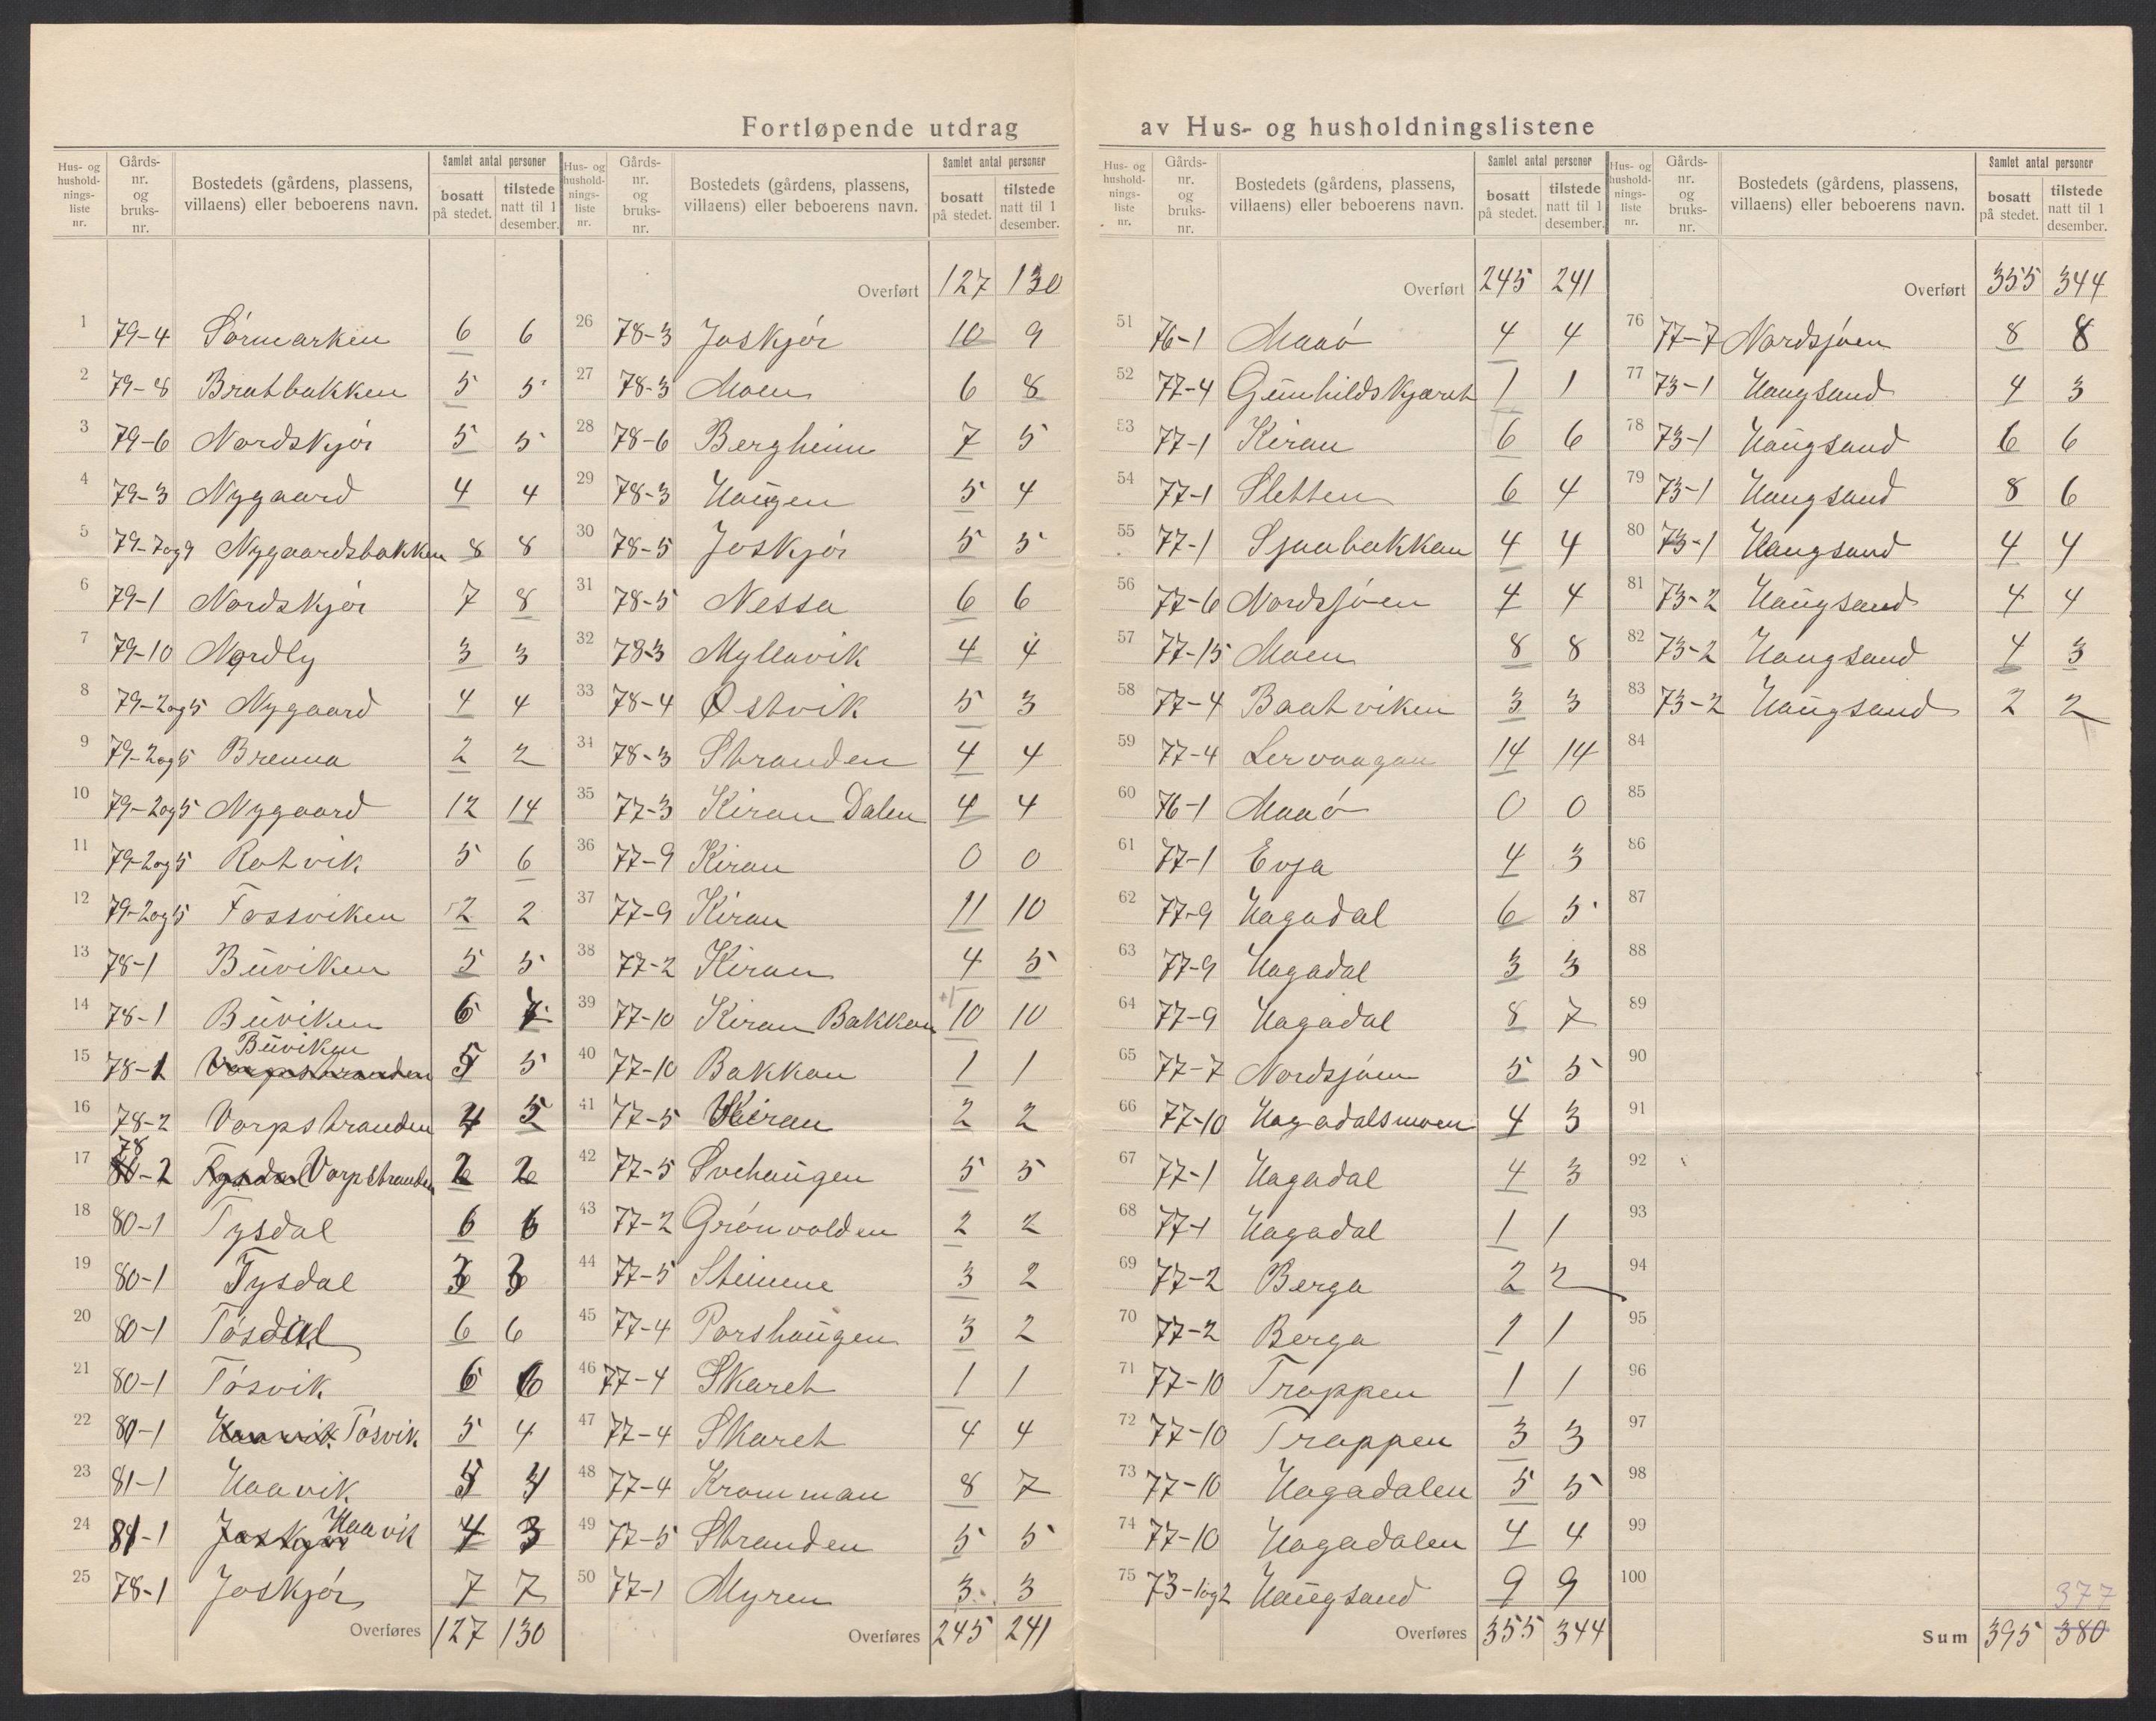 Fortløpende utdrag av Hus- og husholdningslistene
Hus- og husholdnings-liste nr. | Gårds-nr. og bruks-nr. | Bostedets (gårdens, plassens, villaens) eller beboerens navn. | Samlet antal personer | bosatt på stedet. | tilstede natt til 1 desember.
1 79-4 Sørmarken 6 6
2 79-8 Bratbakken 5 5
3 79-6 Nordskjør 5 5
4 79-3 Nygaard 4 4
5 79-7og9 Nygaardsbakken 8 8
6 79-1 Nordskjør 7 8
7 79-10 Nordly 3 3
8 79-2og5 Nygaard 4 4
9 79-2og5 Brenna 2 2
10 79-2og5 Nygaard 12 14
11 79-2og5 Rotvik 5 6
12 79-2og5 Fossviken 2 2
13 78-1 Buviken 5 5
14 78-1 Buviken 6 7
15 78-1 Vorpstranden Buviken 5 5
16 78-2 Vorpstranden 4 5
17 78-2 Tysdal Vorpstranden 2 2
18 80-1 Tysdal 6 6
19 80-1 Tysdal 3 3
20 80-1 Tøsdal 6 6
21 80-1 Tøsvik 6 6
22 80-1 Haavik Tøsvik 5 4
23 81-1 Haavik
24 81-1 Joskjør Haavik 4 3
25 78-1 Joskjør 7 7
Overføres 127 130
Hus- og husholdnings-liste nr. | Gårds-nr. og bruks-nr. | Bostedets (gårdens, plassens, villaens) eller beboerens navn. | Samlet antal personer | bosatt på stedet. | tilstede natt til 1 desember.
Overført 127 130
26 78-3 Joskjør 10 9
27 78-3 Moen 6 8
28 78-6 Bergheim 7 5
29 78-3 Haugen 5 4
30 78-5 Joskjør 5 5
31 78-5 Nessa 6 6
32 78-3 Myllavik 4 4
33 78-4 Østvik 5 3
34 78-3 Stranden 4 4
35 77-3 Kiran Dalen 4 4
36 77-9 Kiran 0 0
37 77-9 Kiran 11 10
38 77-2 Kiran 4 5
39 77-10 Kiran Bakkan 10 10
40 77-10 Bakkan 1 1
41 77-5 Kiran 2 2
42 77-5 Svehaugen 5 5
43 77-2 Grønvolden 2 2
44 77-5 Stemme 3 2
45 77-4 Porshaugen 3 2
46 77-4 Skaret 1 1
47 77-4 Skaret 4 4
48 77-4 Kromman 8 7
49 77-5 Stranden 5 5
50 77-1 Myren 3 3
Overføres 245 241
Hus- og husholdnings-liste nr. | Gårds-nr. og bruks-nr. | Bostedets (gårdens, plassens, villaens) eller beboerens navn. | Samlet antal personer | bosatt på stedet. | tilstede natt til 1 desember.
Overført 245 241
51 76-1 Maaø 4 4
52 77-4 Gunhildskjæret 1 1
53 77-1 Kiran 6 6
54 77-1 Sletten 6 4
55 77-1 Sjaabakkan 4 4
56 77-6 Nordsjøen 4 4
57 77-15 Moen 8 8
58 77-4 Baatviken 3 3
59 77-4 Lervaagan 14 14
60 76-1 Maaø 0 0
61 77-1 Evja 4 3
62 77-9 Hagadal 6 5
63 77-9 Hagadal 3 3
64 77-9 Hagadal 8 7
65 77-7 Nordsjøen 5 5
66 77-10 Hagadalsmoen 4 3
67 77-1 Hagadal 4 3
68 77-1 Hagadal 1 1
69 77-2 Berga 2 2
70 77-2 Berga 1 1
71 77-10 Trappen 1 1
72 77-10 Trappen 3 3
73 77-10 Hagadalen 5 5
74 77-10 Hagadalen 4 4
75 73-1og2 Haugsand 9 9
Overføres 355 344
Hus- og husholdnings-liste nr. | Gårds-nr. og bruks-nr. | Bostedets (gårdens, plassens, villaens) eller beboerens navn. | Samlet antal personer | bosatt på stedet. | tilstede natt til 1 desember.
Overført 355 344
76 77-7 Nordsjøen 8 8
77 73-1 Haugsand 4 3
78 73-1 Haugsand 6 6
79 73-1 Haugsand 8 6
80 73-1 Haugsand 4 4
81 73-2 Haugsand 4 4
82 73-2 Haugsand 4 3
83 73-2 Haugsand 2 2
84
85
86
87
88
89
90
91
92
93
94
95
96
97
98
99
100
377
Sum 395 380